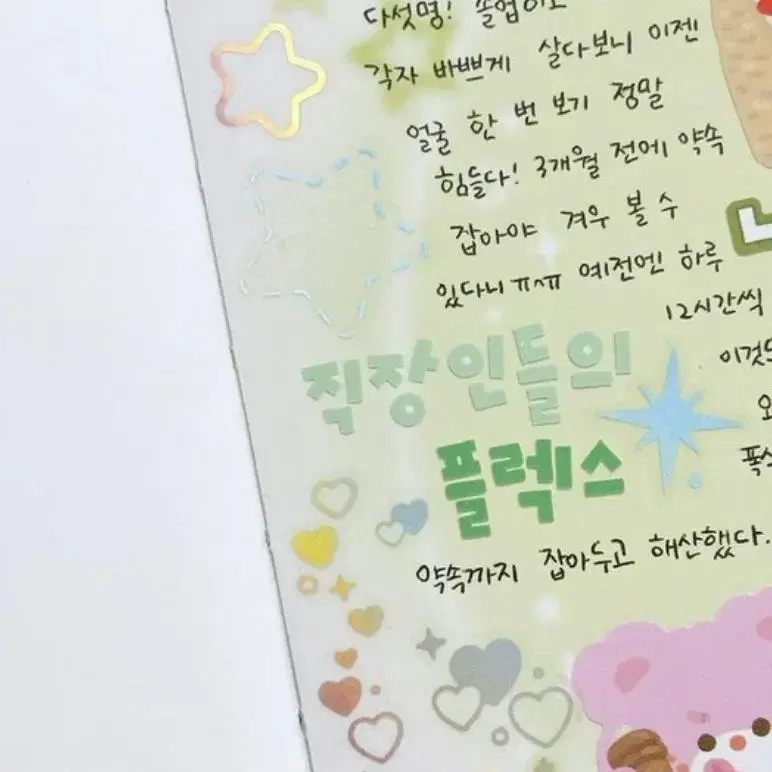 다섯명! 졸업이고
각자 바쁘게 살다보니 이젠
얼굴 한 번 보기 정말
힘들다! 3개월 전에 약속
잡아야 겨우 볼 수
있다니 ㅠㅅㅠ 예전엔 하루
12시간씩
직장인들의
플렉스
약속까지 잡아두고 해산했다.